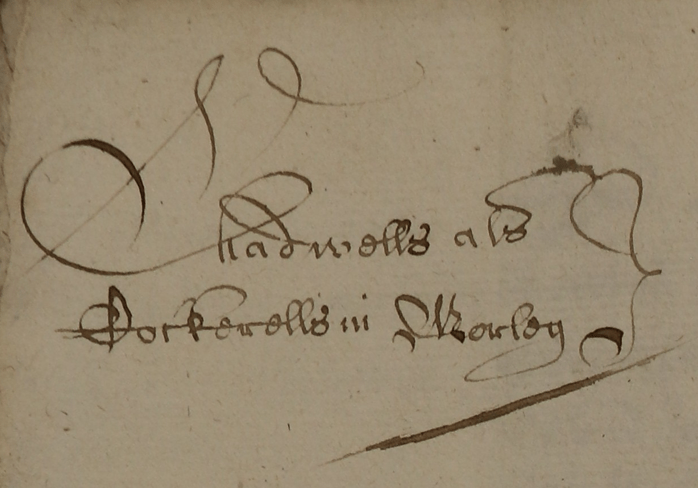 Chadwells als
Cockerells in Warley